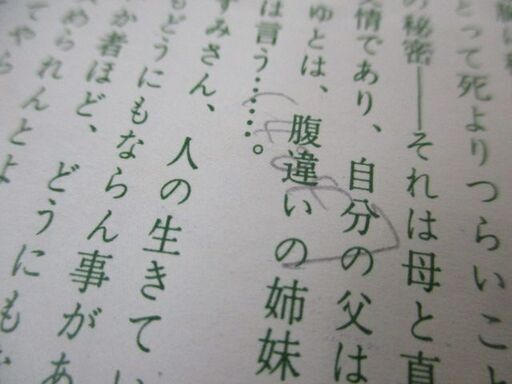 とって死よりつらいこと
の秘密――それは母と直
情であり、自分の父は
ゆとは、腹違いの姉妹
は言う……。
ずみさん、人の生きてい
もどうにもならん事があ
か者ほど、どうにもな
められんとよ
てやら